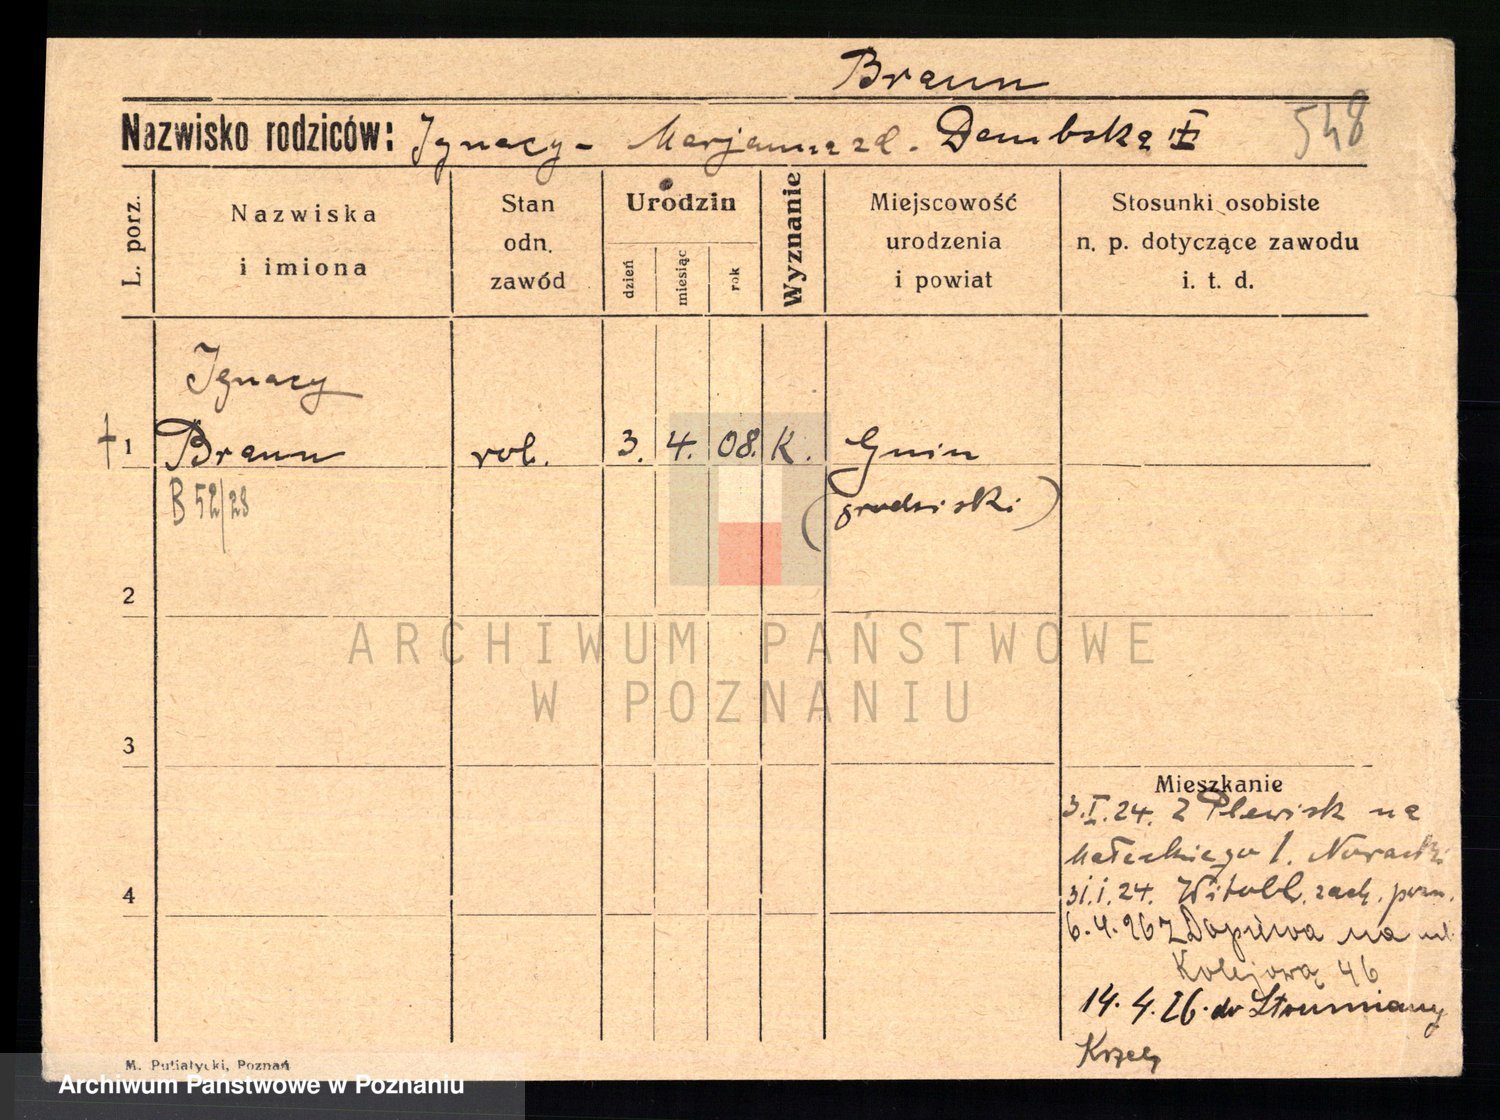 Braun
Nazwisko rodziców: Ignacy - Marjanna zd. Dembska
548
L. porz.
Nazwiska
i imiona
Stan
odn.
zawód
Urodzin
dzień
miesiąc
rok
Wyznanie
Miejscowość
urodzenia
i powiat
Stosunki osobiste
n. p. dotyczące zawodu
i. t. d.
Ignacy
† 1 Braun rob. 3. 4. 08. K. Gnin
B 52/28 (grodziski)
2
ARCHIWUM PAŃSTWOWE
W POZNANIU
3
Mieszkanie
3.I.24. Z Plewisk na
Małeckiego 1.
4
31.1.24. Witobl. zach. pozn.
6.4.26 z Dopiewa na ul.
Kolejową 46
14.4.26. do Strumiany
M. Putiatycki, Poznań
Archiwum Państwowe w Poznaniu